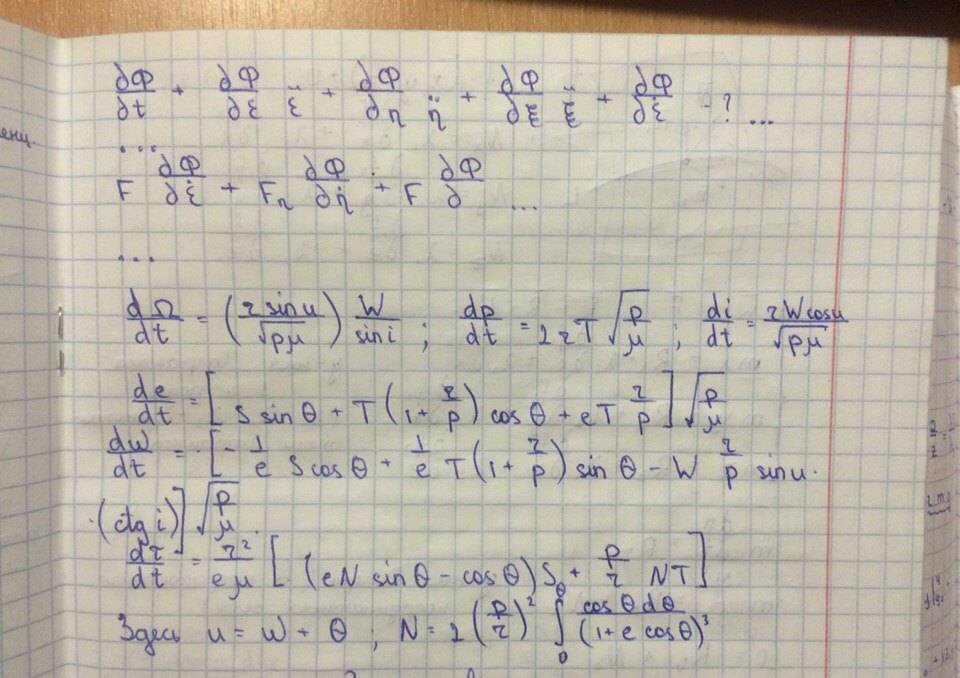 ∂Φ/∂t + ∂Φ/∂ξ ξ̈ + ∂Φ/∂η η̈ + ∂Φ/∂ξ ξ̈ + ∂Φ/∂ξ̇ - ? ...
...
F ∂Φ/∂ξ̇ + Fη ∂Φ/∂η̇ + F ∂Φ/∂ ...
...
dΩ/dt = (r sin u/√pμ) W/sin i ; dp/dt = 2rT √(p/μ) ; di/dt = rW cos u/√pμ
de/dt = [S sin θ + T(1 + r/p) cos θ + eT r/p] √(p/μ)
dω/dt = [- 1/e S cos θ + 1/e T(1 + r/p) sin θ - W r/p sin u ·
· (ctg i)] √(p/μ).
dτ/dt = r²/eμ [(eN sin θ - cos θ) S + p/r NT]
Здесь u = ω + θ ; N = 2 (p/r)² ∫₀^θ cos θ dθ/(1 + e cos θ)³